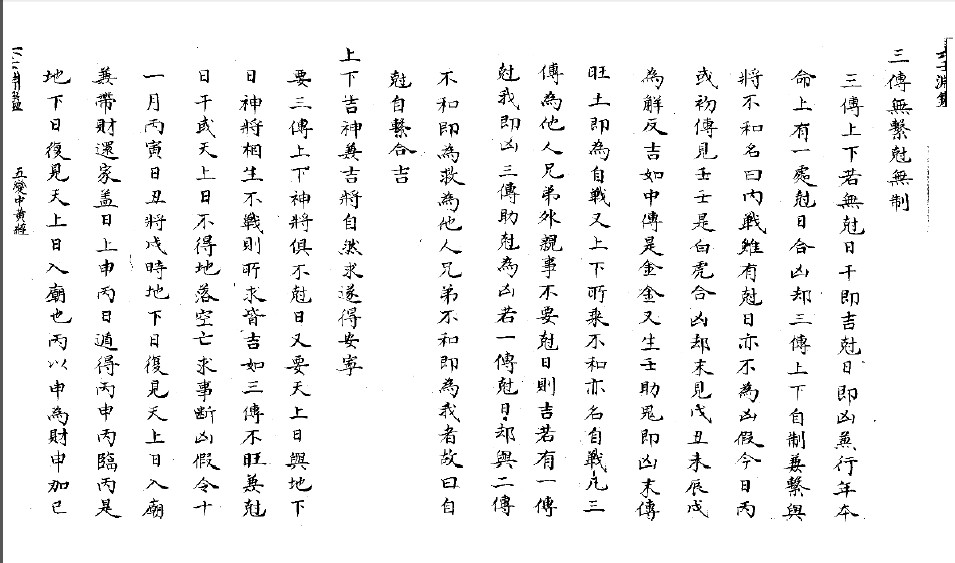 三傳無繫尅無制
三傳上下若無尅日干即吉尅日即凶兼行年本
命上有一處尅日合凶却三傳上下自制兼繫與
將不和名曰內戰雖有尅日亦不為凶假令日丙
或初傳見壬壬是白虎合凶却末見戊丑未辰戌
為解反吉如中傳是金金又生壬助鬼即凶末傳
旺土即為自戰又上下所乘不和亦名自戰凡三
傳為他人兄弟外親事不要尅日則吉若有一傳
尅我即凶三傳助尅為凶若一傳尅日却與二傳
不和即為救為他人兄弟不和即為我者故曰自
尅自繫合吉
上下吉神兼吉將自然求遂得安寧
要三傳上下神將俱不尅日又要天上日與地下
日神將相生不戰則所求皆吉如三傳不旺兼尅
日干或天上日不得地落空亡求事斷凶假令十
一月丙寅日丑將戌時地下日復見天上日入廟
兼帶財還家蓋日上申丙日遁得丙申丙臨丙是
地下日復見天上日入廟也丙以申為財申加巳
五變中黃經